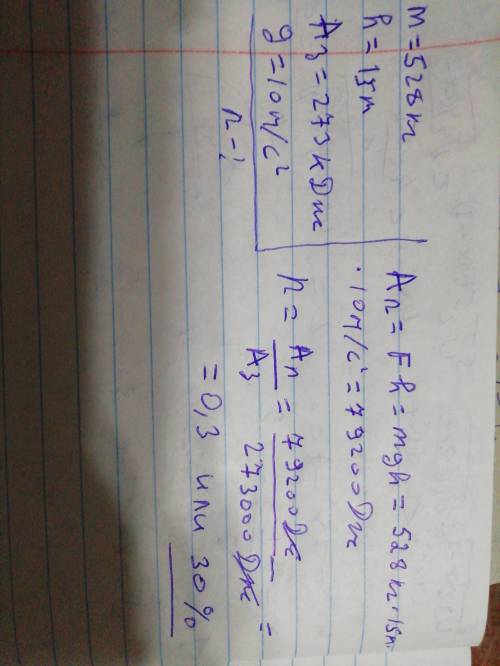 m=528m
h=15m
Aз=273кДж
g=10м/с²
η-?
Aп=Fh=mgh=528кг·15м·
·10м/с²=79200Дж
η=Aп/Aз=79200Дж/273000Дж=
=0,3 или 30%